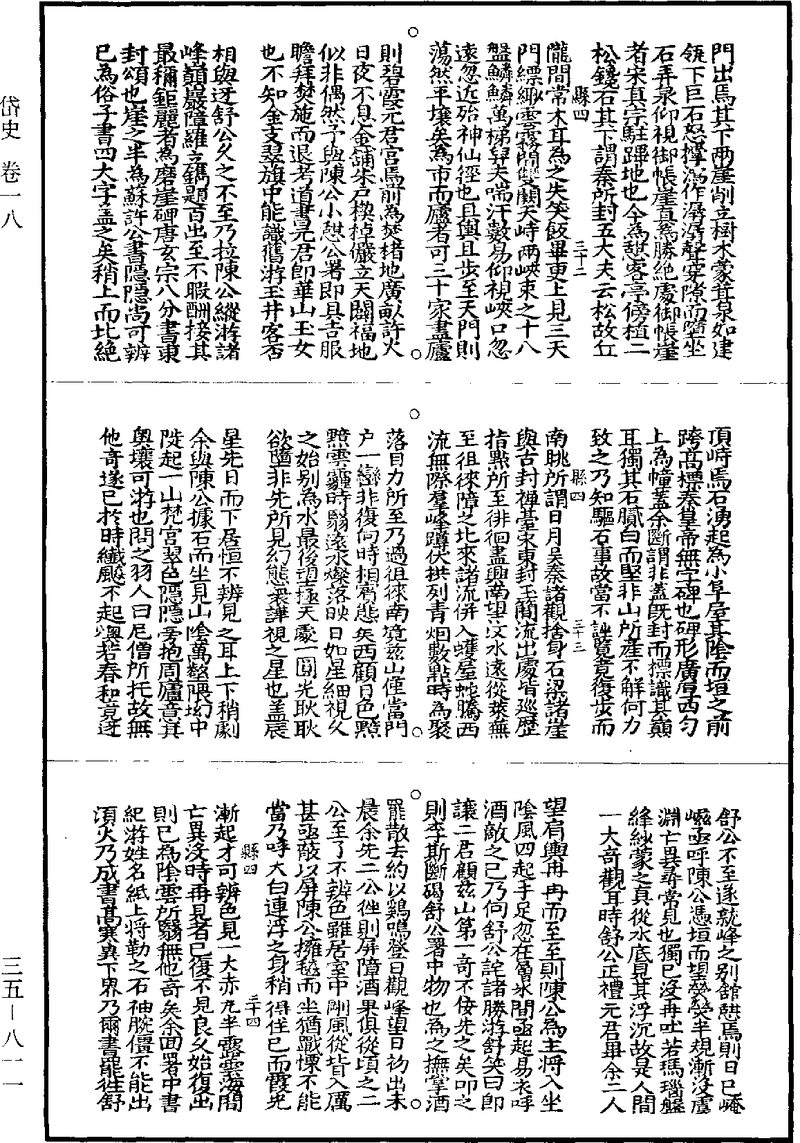 門出焉其下兩崖削立樹木蒙茸泉如建
瓴下巨石怒撐作潺潺聲穿隙而墮坐
石弄泉仰視御帳崖直為勝絕處御帳崖
者宋真宗駐蹕地也今為憇客亭傍植二
松錢石其下謂秦所封五大夫云松故在
縣四 三十二
隴間常木耳為之失笑飯畢更上見三天
門縹緲雲霧間雙闕天峙兩峽束之十八
盤鱗鱗萬梯舁夫喘汗觳易仰視峽口忽
遠忽近殆神仙徑也且輿且步至天門則
蕩然平壤矣為市而廬者可三十家盡廬
則碧霞元君宮焉前為焚楮地廣畝許火
日夜不息金鋪朱戶楔棹儼立天闢福地
似非偶然予與陳公小憇公署即具吉服
瞻拜焚施而退考道書元君即華山玉女
也不知金支翠旗中能識舊游玉井客否
相與迓舒公久之不至乃拉陳公縱游諸
峰巔巖障羅立鐫題百出至不暇酬接其
最稱鉅麗者為磨崖碑唐玄宗八分書東
封頌也崖之半為蘇許公書隱隱尚可辨
已為俗子書四大字蓋之矣稍上而北絕
頂峙焉石湧起為小阜屋其陰而垣之前
跨高標秦皇帝無字碑也碑形廣厚西勻
上為幢蓋余斷謂非蓋旣封而標識其巔
耳獨其石膩白而堅非山所產不解何力
致之乃知驅石事故當不誣覽竟復步而
縣四 三十三
南眺所謂日月吳秦諸觀捨身石梁諸崖
與古封禪臺宋東封玉簡流出處皆巡歷
指點所至徘徊盡興南望汶水遠從萊蕪
至徂徠障之北來諸流併入蠖屈蛇騰西
流無際羣峰蹲伏拱列青烟數點時為聚
落目力所至乃過徂徠南境茲山僅當門
户一巒非復向時相窅態矣西顧日色黯
黯雲霾時翳遠水燦落映日如星細視久
之始別為水最後望極天處一圓光耿耿
欲墮非先所見幻態衆譁視之星也蓋晨
星先日而下居恒不辨見之耳上下稍劇
余與陳公據石而坐見山陰萬壑隈坳中
陡起一山梵宮翠色隱隱旁抱周廬意其
奧壤可游也問之羽人曰尼僧所托故無
他奇遂已於時纖颷不起燠若春和竟迓
舒公不至遂就峰之別館憇焉則日已崦
嵫亟呼陳公憑垣而望煢煢半規漸沒虞
淵亡異尋常見也獨已沒再吐若瑪瑙盤
絳紗蒙之真從水底見其浮沉故是人間
一大奇觀耳時舒公正禮元君畢余二人
望肩輿冉冉而至至則陳公為主將入坐
陰風四起手足忽在層冰間亟起易衣呼
酒敵之已乃向舒公詫諸勝游舒笑曰即
讓二君顧茲山第一奇不佞先之矣叩之
則李斯斷碣舒公署中物也為之撫掌酒
罷散去約以鷄鳴登日觀峰望日初出未
晨余先二公徃則屏障酒果俱從頃之二
公至了不辨色雖居室中剛風從皆入厲
甚亟敲以屏陳公擁毯而坐猶戰慄不能
當乃呼大白連浮之身稍得住已而霞光
縣四 三十四
漸起才可辨色見一大赤丸半露雲海間
亡異沒時再見者已復不見良久始復出
則已為陰雲所翳無他奇矣余回署中書
紀游姓名紙上將勒之石袖腕僵不能出
湏火乃成書高寒異下界乃爾書罷徃舒
岱史 卷一八
三五—八一一